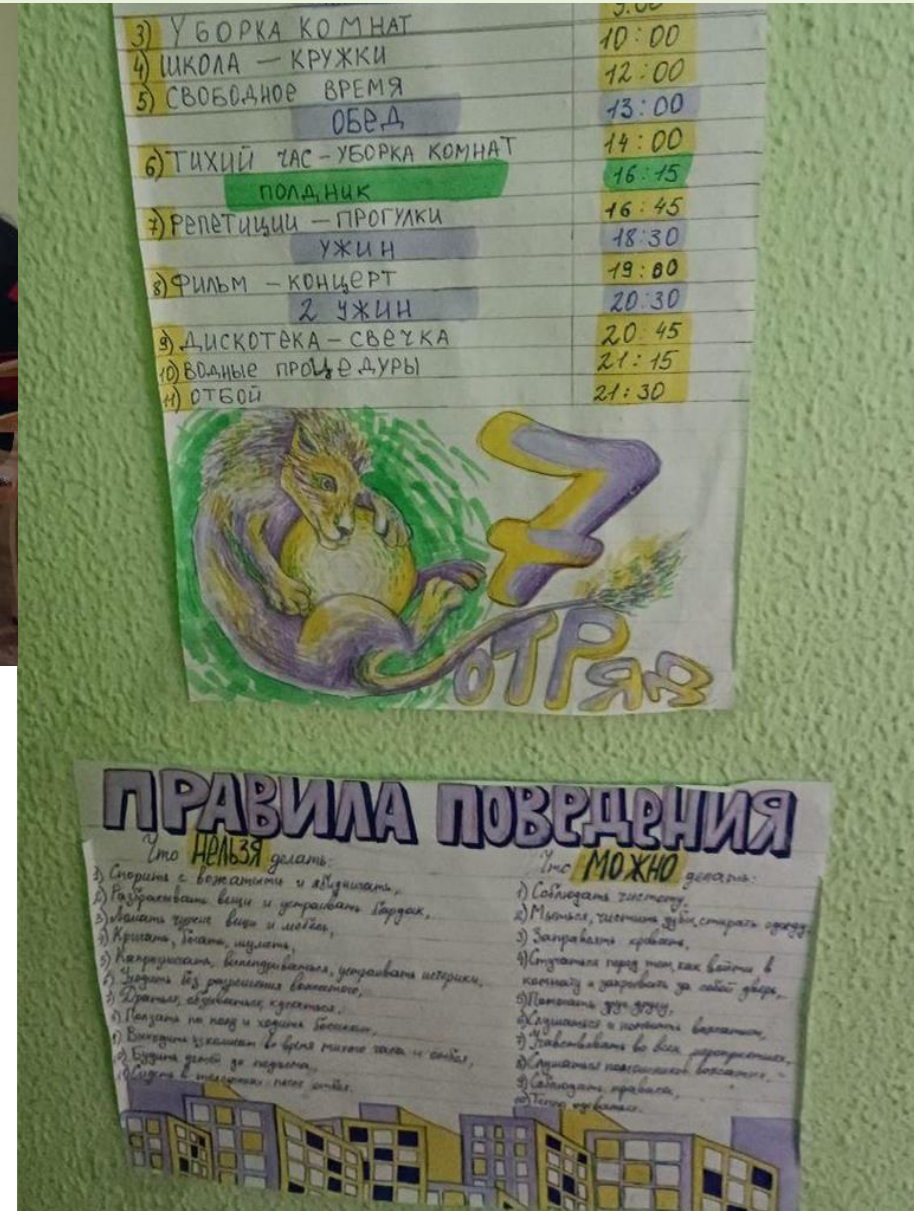 3) УБОРКА КОМНАТ 10:00
4) ШКОЛА — КРУЖКИ 12:00
5) СВОБОДНОЕ ВРЕМЯ
ОБЕД 13:00
6) ТИХИЙ ЧАС – УБОРКА КОМНАТ 14:00
ПОЛДНИК 16:15
7) РЕПЕТИЦИИ — ПРОГУЛКИ 16:45
УЖИН 18:30
8) ФИЛЬМ – КОНЦЕРТ 19:00
2 УЖИН 20:30
9) ДИСКОТЕКА – СВЕЧКА 20:45
10) ВОДНЫЕ ПРОЦЕДУРЫ 21:15
11) ОТБОЙ 21:30
7
ОТРЯД
ПРАВИЛА ПОВЕДЕНИЯ
Что НЕЛЬЗЯ делать:
1) Спорить с вожатыми и ябедничать,
2) Разбрасывать вещи и устраивать бардак,
3) Ломать чужие вещи и мебель,
4) Кричать, бегать, шуметь,
5) Капризничать, выпендриваться, устраивать истерики,
6) Уходить без разрешения вожатого,
7) Драться, обзываться, кусаться,
8) Ползать по полу и ходить босиком,
9) Выходить из комнат во время тихого часа и отбоя,
10) Будить детей до подъёма,
11) Сидеть в телефонах после отбоя.
Что МОЖНО делать:
1) Соблюдать чистоту,
2) Мыться, чистить зубы, стирать одежду,
3) Заправлять кровать,
4) Стучаться перед тем, как войти в
комнату и закрывать за собой дверь,
5) Помогать друг другу,
6) Слушаться и вожатых,
7) Участвовать во всех мероприятиях,
8) Слушаться помощников вожатых,
9) Соблюдать правила,
10) Тепло одеваться.